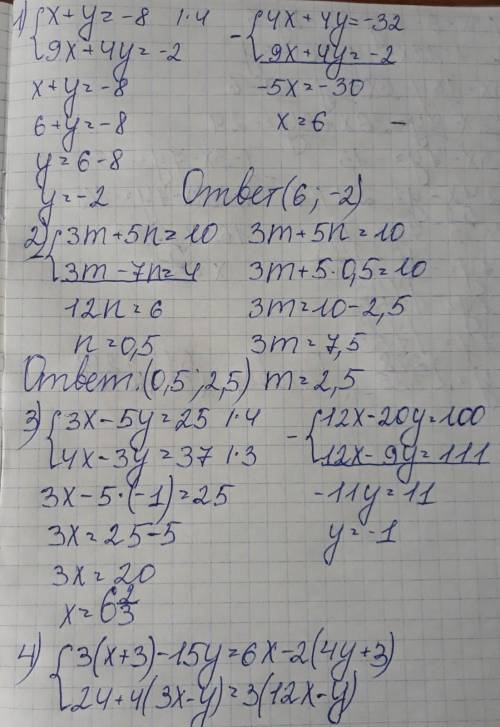 1) { x+y=-8 | ·4
9x+4y=-2
- { 4x+4y=-32
9x+4y=-2
x+y=-8
-5x=-30
6+y=-8
x=6 -
y=6-8
y=-2
Ответ(6; -2)
2) { 3m+5n=10
3m-7n=4
12n=6
n=0,5
3m+5n=10
3m+5·0,5=10
3m=10-2,5
3m=7,5
m=2,5
Ответ:(0,5; 2,5)
3) { 3x-5y=25 | ·4
4x-3y=37 | ·3
- { 12x-20y=100
12x-9y=111
-11y=11
y=-1
3x-5·(-1)=25
3x=25-5
3x=20
x=6 2/3
4) { 3(x+3)-15y=6x-2(4y+3)
24+4(3x-y)=3(12x-y)